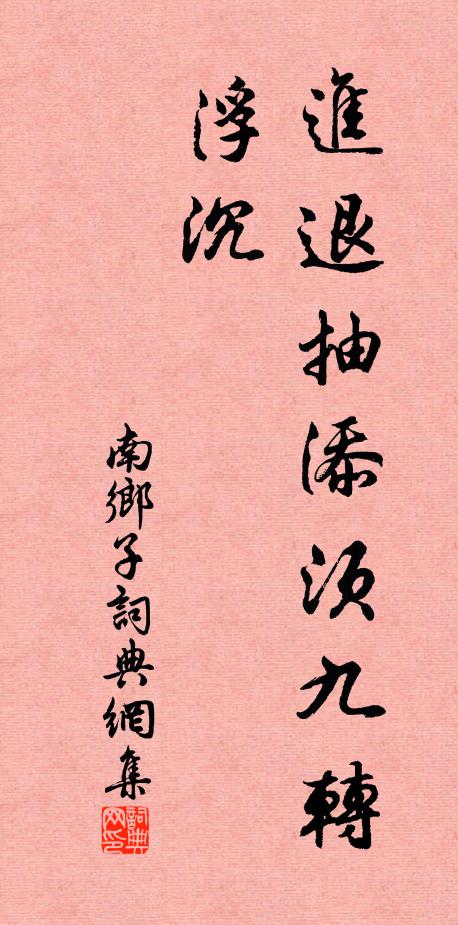 進退抽添須九轉
浮沉
南鄉子詞典網集
詞典网印